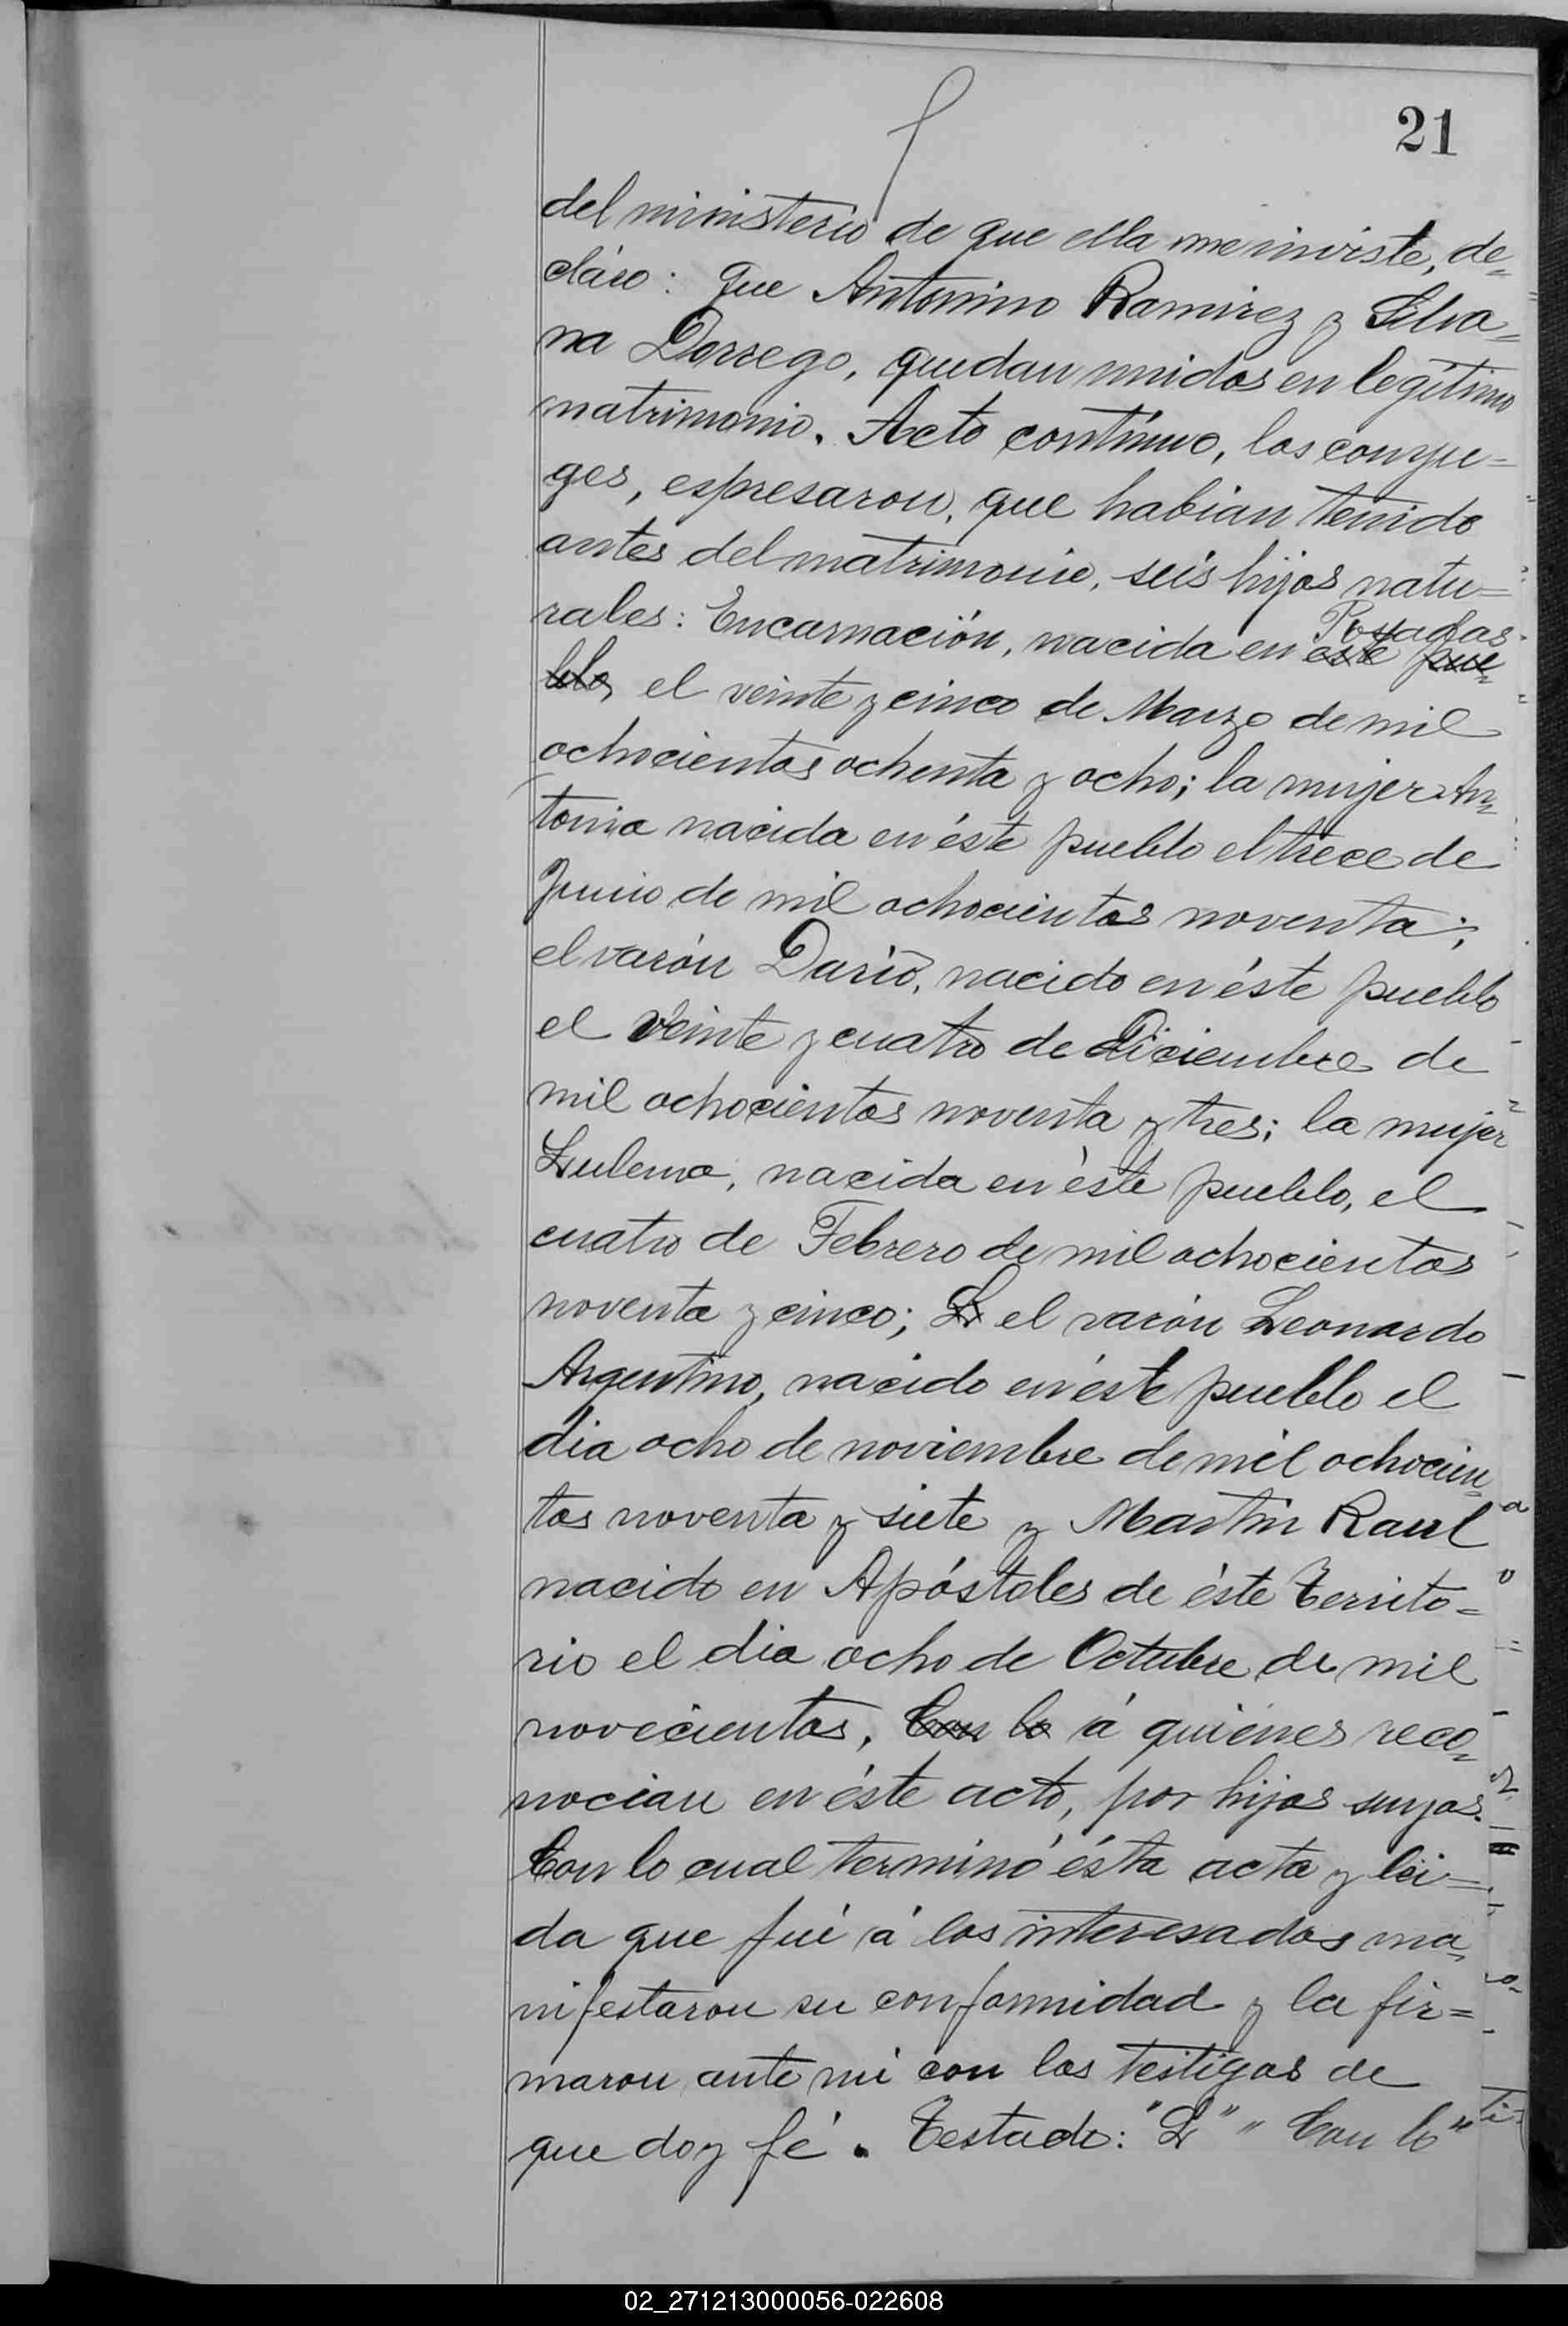 21
del ministerio de que ella me inviste, de=
cláro: que Antonino Ramirez y Silva=
na Dorrego, quedan unidos en legítimo
matrimonio. Acto contínuo, los conyu=
ges, espresaron, que habian tenido
antes del matrimonio, seis hijos natu=
rales: Encarnación, nacida en Posadas este pue=
blo, el veinte y cinco de Marzo de mil
ochocientos ochenta y ocho; la mujer An=
tonia nacida en éste pueblo el trece de
Junio de mil ochocientos noventa;
el varón Darío, nacido en éste pueblo
el veinte y cuatro de Diciembre de
mil ochocientos noventa y tres; la mujer
Zulema, nacida en éste pueblo, el
cuatro de Febrero de mil ochocientos
noventa y cinco; L el varón Leonardo
Argentino, nacido en éste pueblo el
dia ocho de noviembre de mil ochocien=
tos noventa y siete y Martin Raul
nacido en Apóstoles de éste Territo=
rio el dia ocho de Octubre de mil
novecientos, Con lo á quiénes reco=
nocian en éste acto, por hijos suyos.
Con lo cual terminó ésta acta y léi=
da que fué á los interesados ma=
nifestaron su conformidad y la fir=
maron ante mi con los testigos de
que doy fé. Testado: "L" "Con lo"
02_271213000056-022608